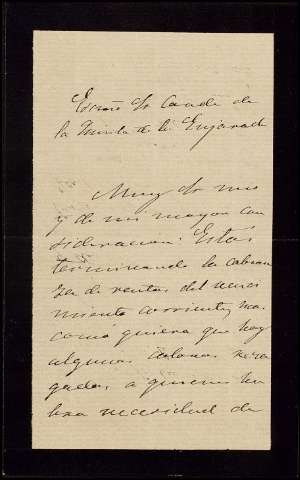 Excmo Sr Conde de
la Quinta de la Enjarada
Muy Sr mio
y de mi mayor con
sideracion: Estoy
terminando la cobran
za de rentas del venci
miento corriente, mas
como quiera que hay
algunos colonos reza
gados, a quienes ha
bra necesidad de